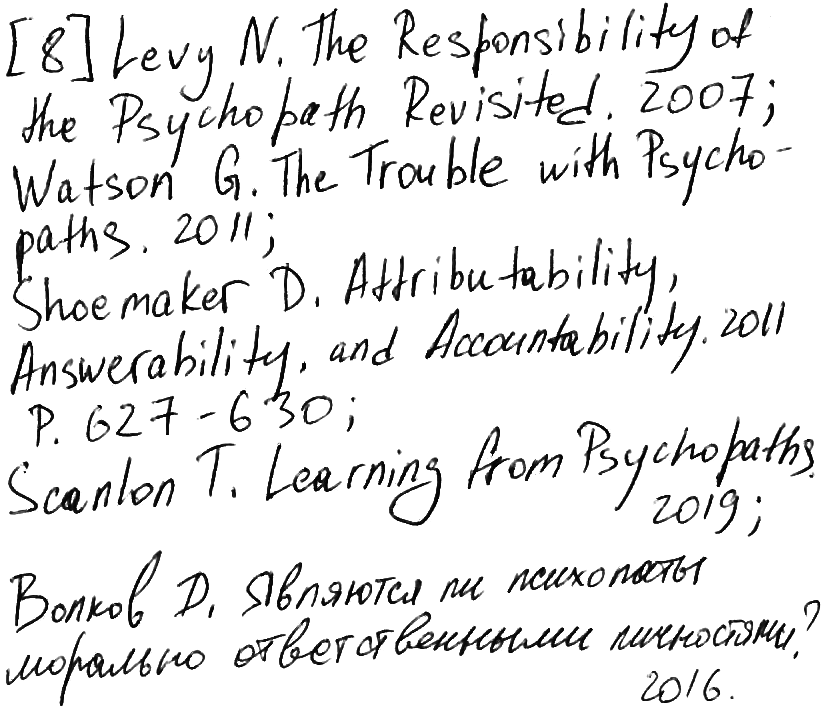 [8] Levy N. The Responsibility of
the Psychopath Revisited. 2007;
Watson G. The Trouble with Psycho-
paths. 2011;
Shoemaker D. Attributability,
Answerability, and Accountability. 2011
P. 627-630;
Scanlon T. Learning from Psychopaths.
2019;
Волков Д. Являются ли психопаты
морально ответственными личностями?
2016.